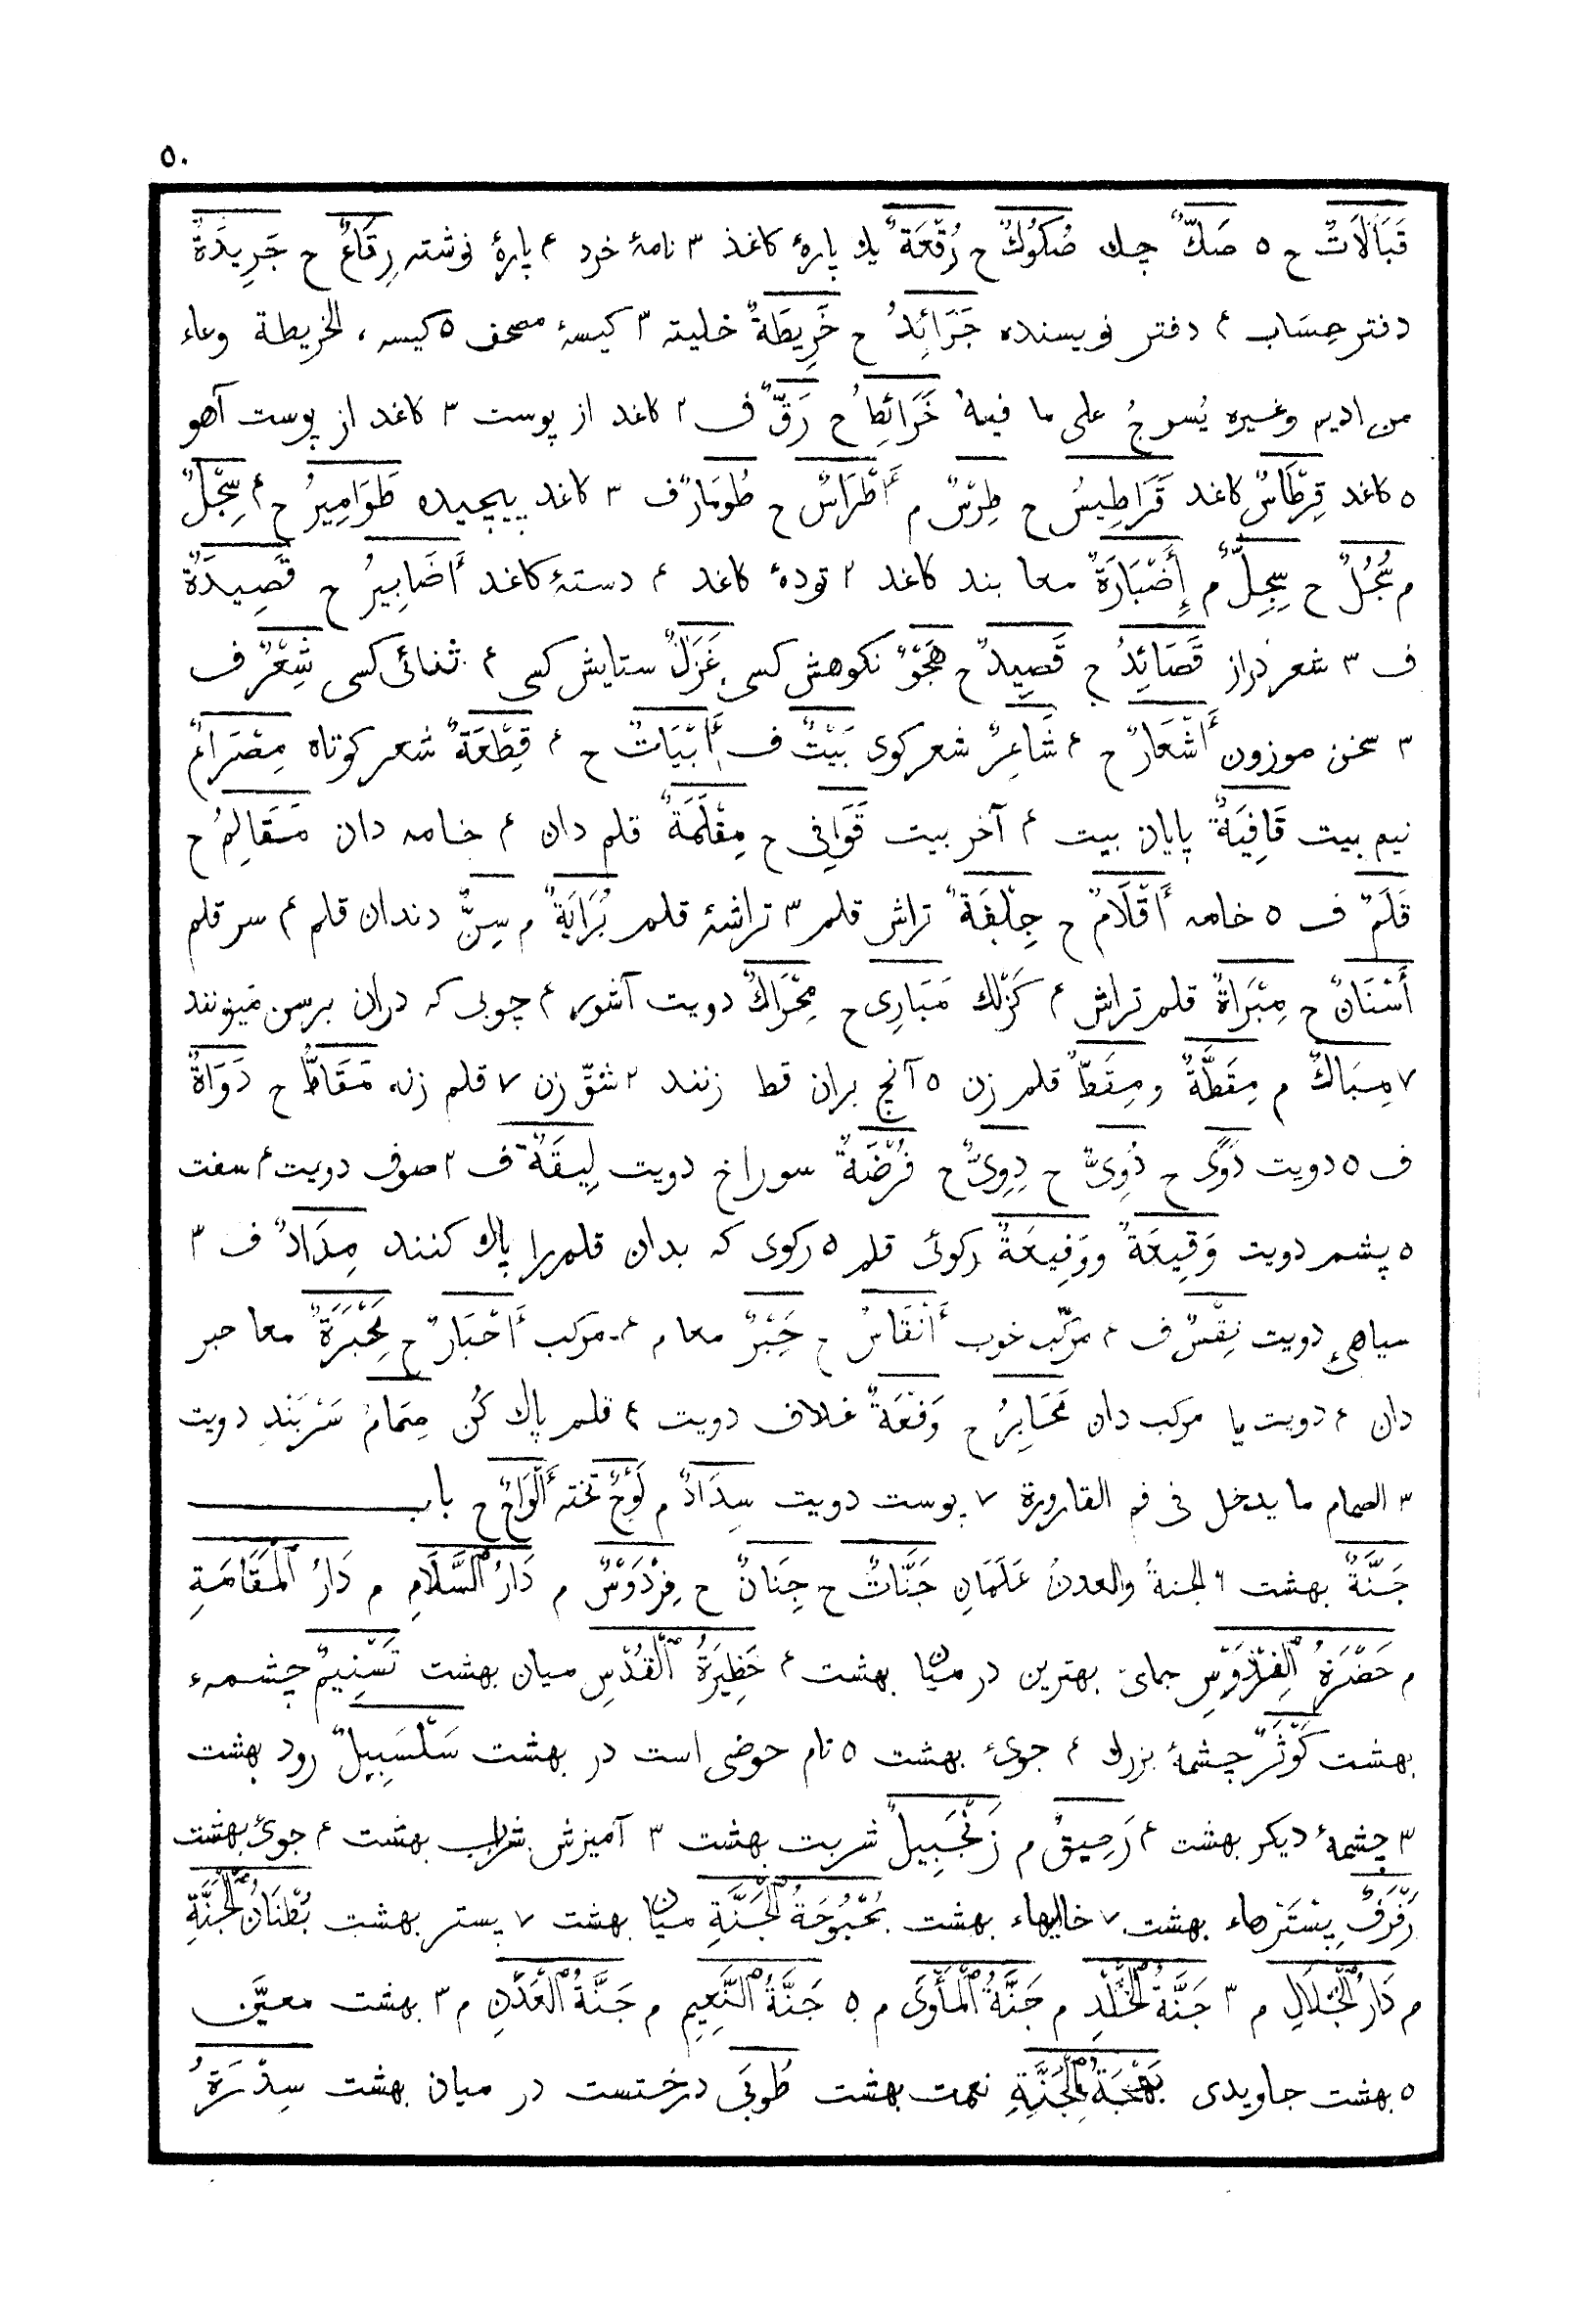 ٥٠
قَبَالَاتٌ ح ٥ صَكٌّ چك صُكُوكٌ ح رُقْعَةٌ يك پارهٔ كاغذ ٣ نامهٔ خرد ۴ پارهٔ نوشته رِقَاعٌ ح جَرِيدَةٌ
دفتر حِسَاب ۴ دفتر نويسنده جَرَائِدُ ح خَرِيطَةٌ خليته ٣ كيسهٔ مصحف ٥ كيسه ، الخريطة وعاء
من اديم وغيره يُسرجُ على ما فيهُ خَرَائِطِ ح رَقٌّ ف ٢ كاغد از پوست ٣ كاغد از پوست آهو
٥ كاغد قِرْطَاسٌ كاغد قَرَاطِيسُ ح طِرْسٌ م أَطْرَاسٌ ح طُومَارٌ ف ٣ كاغد پيچيده طَوَامِيرُ ح ۴ سِجْلٌ
م سُجُلٌ ح سِجِلٌّ م إِضْبَارَةٌ معا بند كاغد ٢ تودهٔ كاغد ۴ دستهٔ كاغد أَضَابِيرُ ح قَصِيدَةٌ
ف ٣ شعر دراز قَصَائِدُ ح قَصِيدٌ ح هَجْوٌ نكوهش كسى غَزَلٌ ستايش كسى ۴ ثنائ كسى شِعْرٌ ف
٣ سخن موزون أَشْعَارٌ ح ۴ شَاعِرٌ شعر كوى بَيْتٌ ف أَبْيَاتٌ ح ۴ قِطْعَةٌ شعر كوتاه مِصْرَاعٌ
نيم بيت قَافِيَةٌ پايان بيت ۴ آخر بيت قَوَافِى ح مِقْلَمَةٌ قلم دان ۴ خامه دان مَقَالِمُ ح
قَلَمٌ ف ٥ خامه أَقْلَامٌ ح جِلْفَةٌ تراش قلم ٣ تراشهٔ قلم بُرَايَةٌ م سِنٌّ دندان قلم ۴ سر قلم
أَسْنَانٌ ح مِبْرَاةٌ قلم تراش ۴ كَزْلك مَبَارِى ح مِحْرَاكٌ دويت آشور ۴ چوبى كه دران برسن ميزنند
٧ مِسَبَاكٌ م مِقَطَّةٌ و مِقَطٌّ قلم زن ٥ آنچ بران قط زنند ٢ شقّ زن ٧ قلم زنه مَقَاطٌّ ح دَوَاةٌ
ف ٥ دويت دَوًى ح دُوِىٌّ ح دِوِىٌّ ح فُرْضَةٌ سوراخ دويت لِيقَةٌ ف ٢ صوف دويت ۴ سفت
٥ پشم دويت وَقِيعَةٌ و وَفِيعَةٌ ركوئ قلم ٥ ركوى كه بدان قلم را پاك كنند مِدَادٌ ف ٣
سياهىِ دويت نِقْسٌ ف ۴ مركّب خوب أَنْقَاسٌ ح حِبْرٌ معا م ۴ مركب أَحْبَارٌ ح مَحْبَرَةٌ معا حبر
دان ۴ دويت يا مركب دان مَحَابِرُ ح وَفْعَةٌ غلاف دويت ۴ قلم پاك كُن صِمَامٌ سَرْبَندِ دويت
٣ الصمام ما يدخل فى فم القارورة ٧ پوست دويت سِدَادٌ م لَوْحٌ تخته أَلْوَاحٌ ح باب
جَنَّةٌ بهشت ۶ الجنةُ والعدنُ عَلَمَانِ جَنَّاتٌ ح جِنَانٌ ح فِرْدَوْسٌ م دَارُ ٱلسَّلَامِ م دَارُ ٱلْمَقَامَةِ
م حَضْرَةُ ٱلْفِرْدَوْسِ جماى بهترين در ميان بهشت ۴ حَظِيرَةُ ٱلْقُدْسِ ميان بهشت تَسْنِيمٌ چشمهء
بهشت كَوْثَرٌ چشمهٔ بزرك ۴ جوىٔ بهشت ٥ نام حوضى است در بهشت سَلْسَبِيلٌ رود بهشت
٣ چشمهٔ ديكر بهشت ۴ رَحِيقٌ م زَنْجَبِيلٌ شربت بهشت ٣ آميزش شراب بهشت ۴ جوىٔ بهشت
رَفْرَفٌ بِسْتَرهاء بهشت ٧ خاليهاء بهشت بُحْبُوحَةُ ٱلْجَنَّةِ ميان بهشت ٧ پستر بهشت بُطْنَانُ ٱلْجَنَّةِ
م دَارُ ٱلْجَلَالِ م ٣ جَنَّةُ ٱلْخُلْدِ م جَنَّةُ ٱلْمَأْوَى م ٥ جَنَّةُ ٱلنَّعِيمِ م جَنَّةُ ٱلْعَدْنِ م ٣ بهشت معيَّن
٥ بهشت جاويدى بَهْجَةُ ٱلْجَنَّةِ نعمت بهشت طُوبَى درختست در ميان بهشت سِدْرَةُ